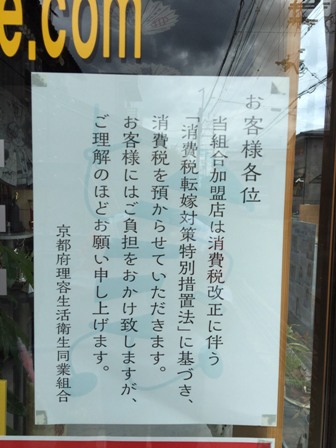 e.com
お客様各位
当組合加盟店は消費税改正に伴う
「消費税転嫁対策特別措置法」に基づき、
消費税を預からせていただきます。
お客様にはご負担をおかけ致しますが、
ご理解のほどお願い申し上げます。
京都府理容生活衛生同業組合